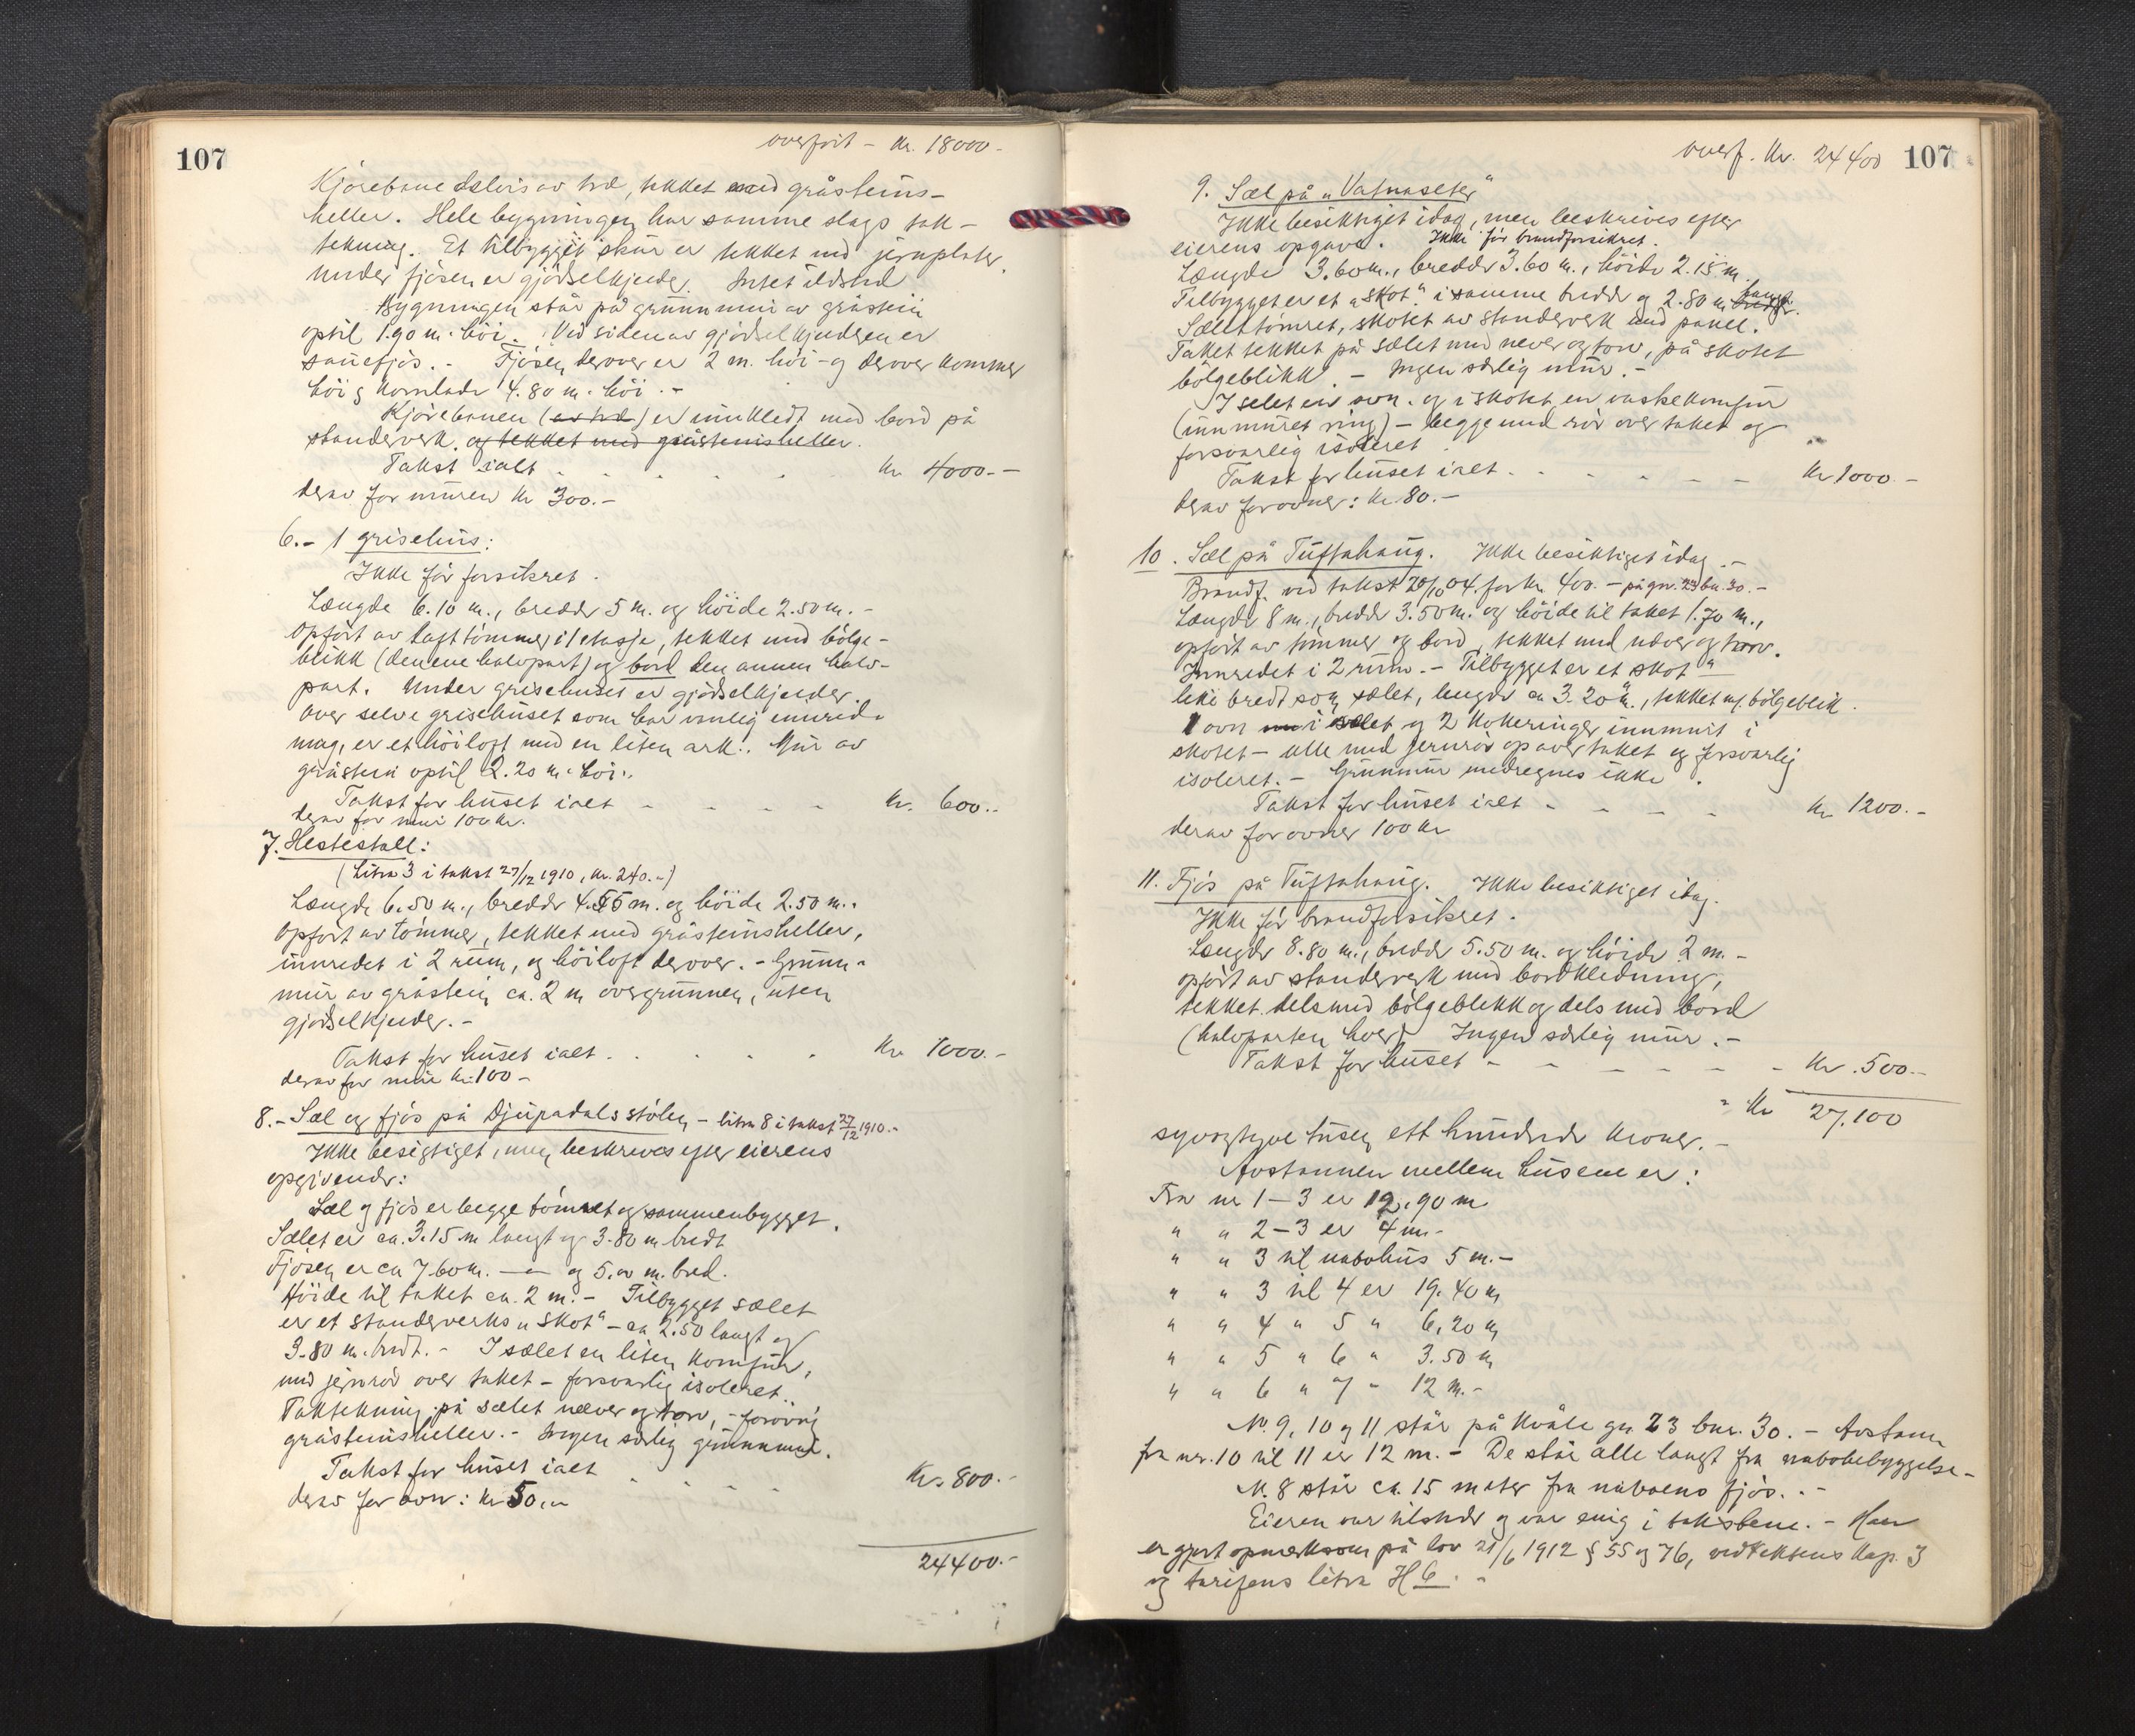 107
overført - Kr. 18000.-
Kjørebane delvis av træ, tekket med gråsteins-
heller. Hele bygningen har samme slags tak-
tekning. Et tilbygget skur er tekket med jernplater.
Under fjøsen er gjødselkjelder. Intet ildsted
Bygningen står på grunnmur av gråstein
optil 1.90 m. høi. Ved siden av gjødselkjelderen er
sauefjøs. - Fjøsen derover er 2 m. høi - og derover kommer
høi & kornlade 4.80 m. høi. -
Kjørebanen (av træ) er innkledt med bord på
standerverk. og tekket med gråsteinsheller.
Takst ialt - - - - Kr 4000.-
derav for muren Kr 300.-
6.- 1 grisehus:
Ikke før forsikret.
Længde 6.10 m., bredde 5 m. og høide 2.50 m. -
Opført av lafttømmer i 1 etasje, tekket med bølge-
blikk (den ene halvpart) og bord den annen halv-
part. Under grisehuset er gjødselkjelder.
Over selve grisehuset som har vanlig innred-
ning, er et høiloft med en liten ark. Mur av
gråstein optil 2.20 m. høi.
Takst for huset ialt - - - - Kr. 600.-
derav for mur 100 Kr.
7. Hestestall:
(Litra 3 i takst 27/12 1910, Kr. 240.-)
Længde 6.50 m., bredde 4.55 m. og høide 2.50 m.
Opført av tømmer, tekket med gråsteinsheller,
innredet i 2 rum, og høiloft derover. - Grunn-
mur av gråstein ca. 2 m over grunnen, uten
gjødselkjelder. -
Takst for huset ialt . . . . . Kr 1000.-
derav for mur Kr. 100 -
8. - Sæl og fjøs på Djupadalsstølen - litra 8 i takst 27/12 1910.-
Ikke besigtiget, men beskrives efter eierens
opgivende:
Sæl og fjøs er begge tømret og sammenbygget.
Sælet er ca. 3.15 m langt og 3.80 m bredt
Fjøsen er ca 7.60 m. — " — og 5.00 m. bred.
Høide til taket ca. 2 m. - Tilbygget sælet
er et standerverks "skot" - ca 2.50 langt og
3.80 m. bredt. - I sælet en liten komfur,
med jernrør over taket - forsvarlig isoleret.
Taktekning på sælet næver og torv, - forøvrig
gråsteinsheller. - Ingen særlig grunnmur.
Takst for huset ialt - - - - Kr. 800.-
derav for ovn: Kr 50.-
24400.-
overf. Kr. 24400
107
9. Sæl på "Vatnaseter"
Ikke besiktiget idag, men beskrives efter
eierens opgave. Ikke før brandforsikret.
Længde 3.60 m., bredde 3.60 m., høide 2.15 m.
Tilbygget er et "skot" i samme bredde og 2.80 m bredt langt.
Sælet tømret, skotet av standerverk med panel.
Taket tekket på sælet med never og torv, på skotet
bølgeblikk. - Ingen særlig mur. -
I selet en ovn. og i skotet en vaskekomfur
(innmuret ring) - begge med rør over taket og
forsvarlig isoleret.
Takst for huset ialt - - - - - Kr 1000.-
derav for ovner: Kr. 80.-
10. Sæl på Tuftahaug. Ikke besiktiget idag. -
Brandf. ved takst 20/10 04. for Kr. 400. - på gnr. 23 bn. 30. -
Længde 8 m., bredde 3.50 m. og høide til taket 1.70 m.,
opført av tømmer og bord, tekket med never og torv.
Innredet i 2 rum. - Tilbygget er et "skot"
like bredt som sælet, lengde ca 3.20 m., tekket m/ bølgeblik.
1 ovn i sælet og 2 kokeringer innmurt i
skotet - alle med jernrør op over taket og forsvarlig
isoleret. - Grunnmur medregnes ikke.
Takst for huset ialt - - - - Kr 1200.-
derav for ovner 100 Kr
11. Fjøs på Tuftahaug. Ikke besiktiget idag.
Ikke før brandforsikret.
Længde 8.80 m., bredde 5.50 m. og høide 2 m. -
opført av standerverk med bordkledning,
tekket dels med bølgeblekk og dels med bord
(halvparten hver) Ingen særlig mur. -
Takst for huset - - - - - - Kr. 500.-
= Kr 27,100
syvogtyve tusen ett hundrede kroner. -
Avstannen mellem husene er:
Fra nr 1 - 3 er 12.90 m
" " 2 - 3 er 4 m. -
" " 3 til nabohus 5 m. -
" " 3 til 4 er 19.40 m
" " 4 " 5 " 6,20 m
" " 5 " 6 " 3.50 m
" " 6 " 7 - 12 m. -
Nr. 9, 10 og 11 står på Kvåle gn. 23 bnr. 30. - Avstann
fra nr. 10 til 11 er 12 m. - De står alle langt fra nabobebyggelse -
Nr. 8 står ca. 15 meter fra naboens fjøs. -
Eieren var tilstede og var enig i takstene. - Han
er gjort opmerksom på lov 21/6 1912 § 55 og 76, vedtektens kap. 3
og tarifens litra H 6. -